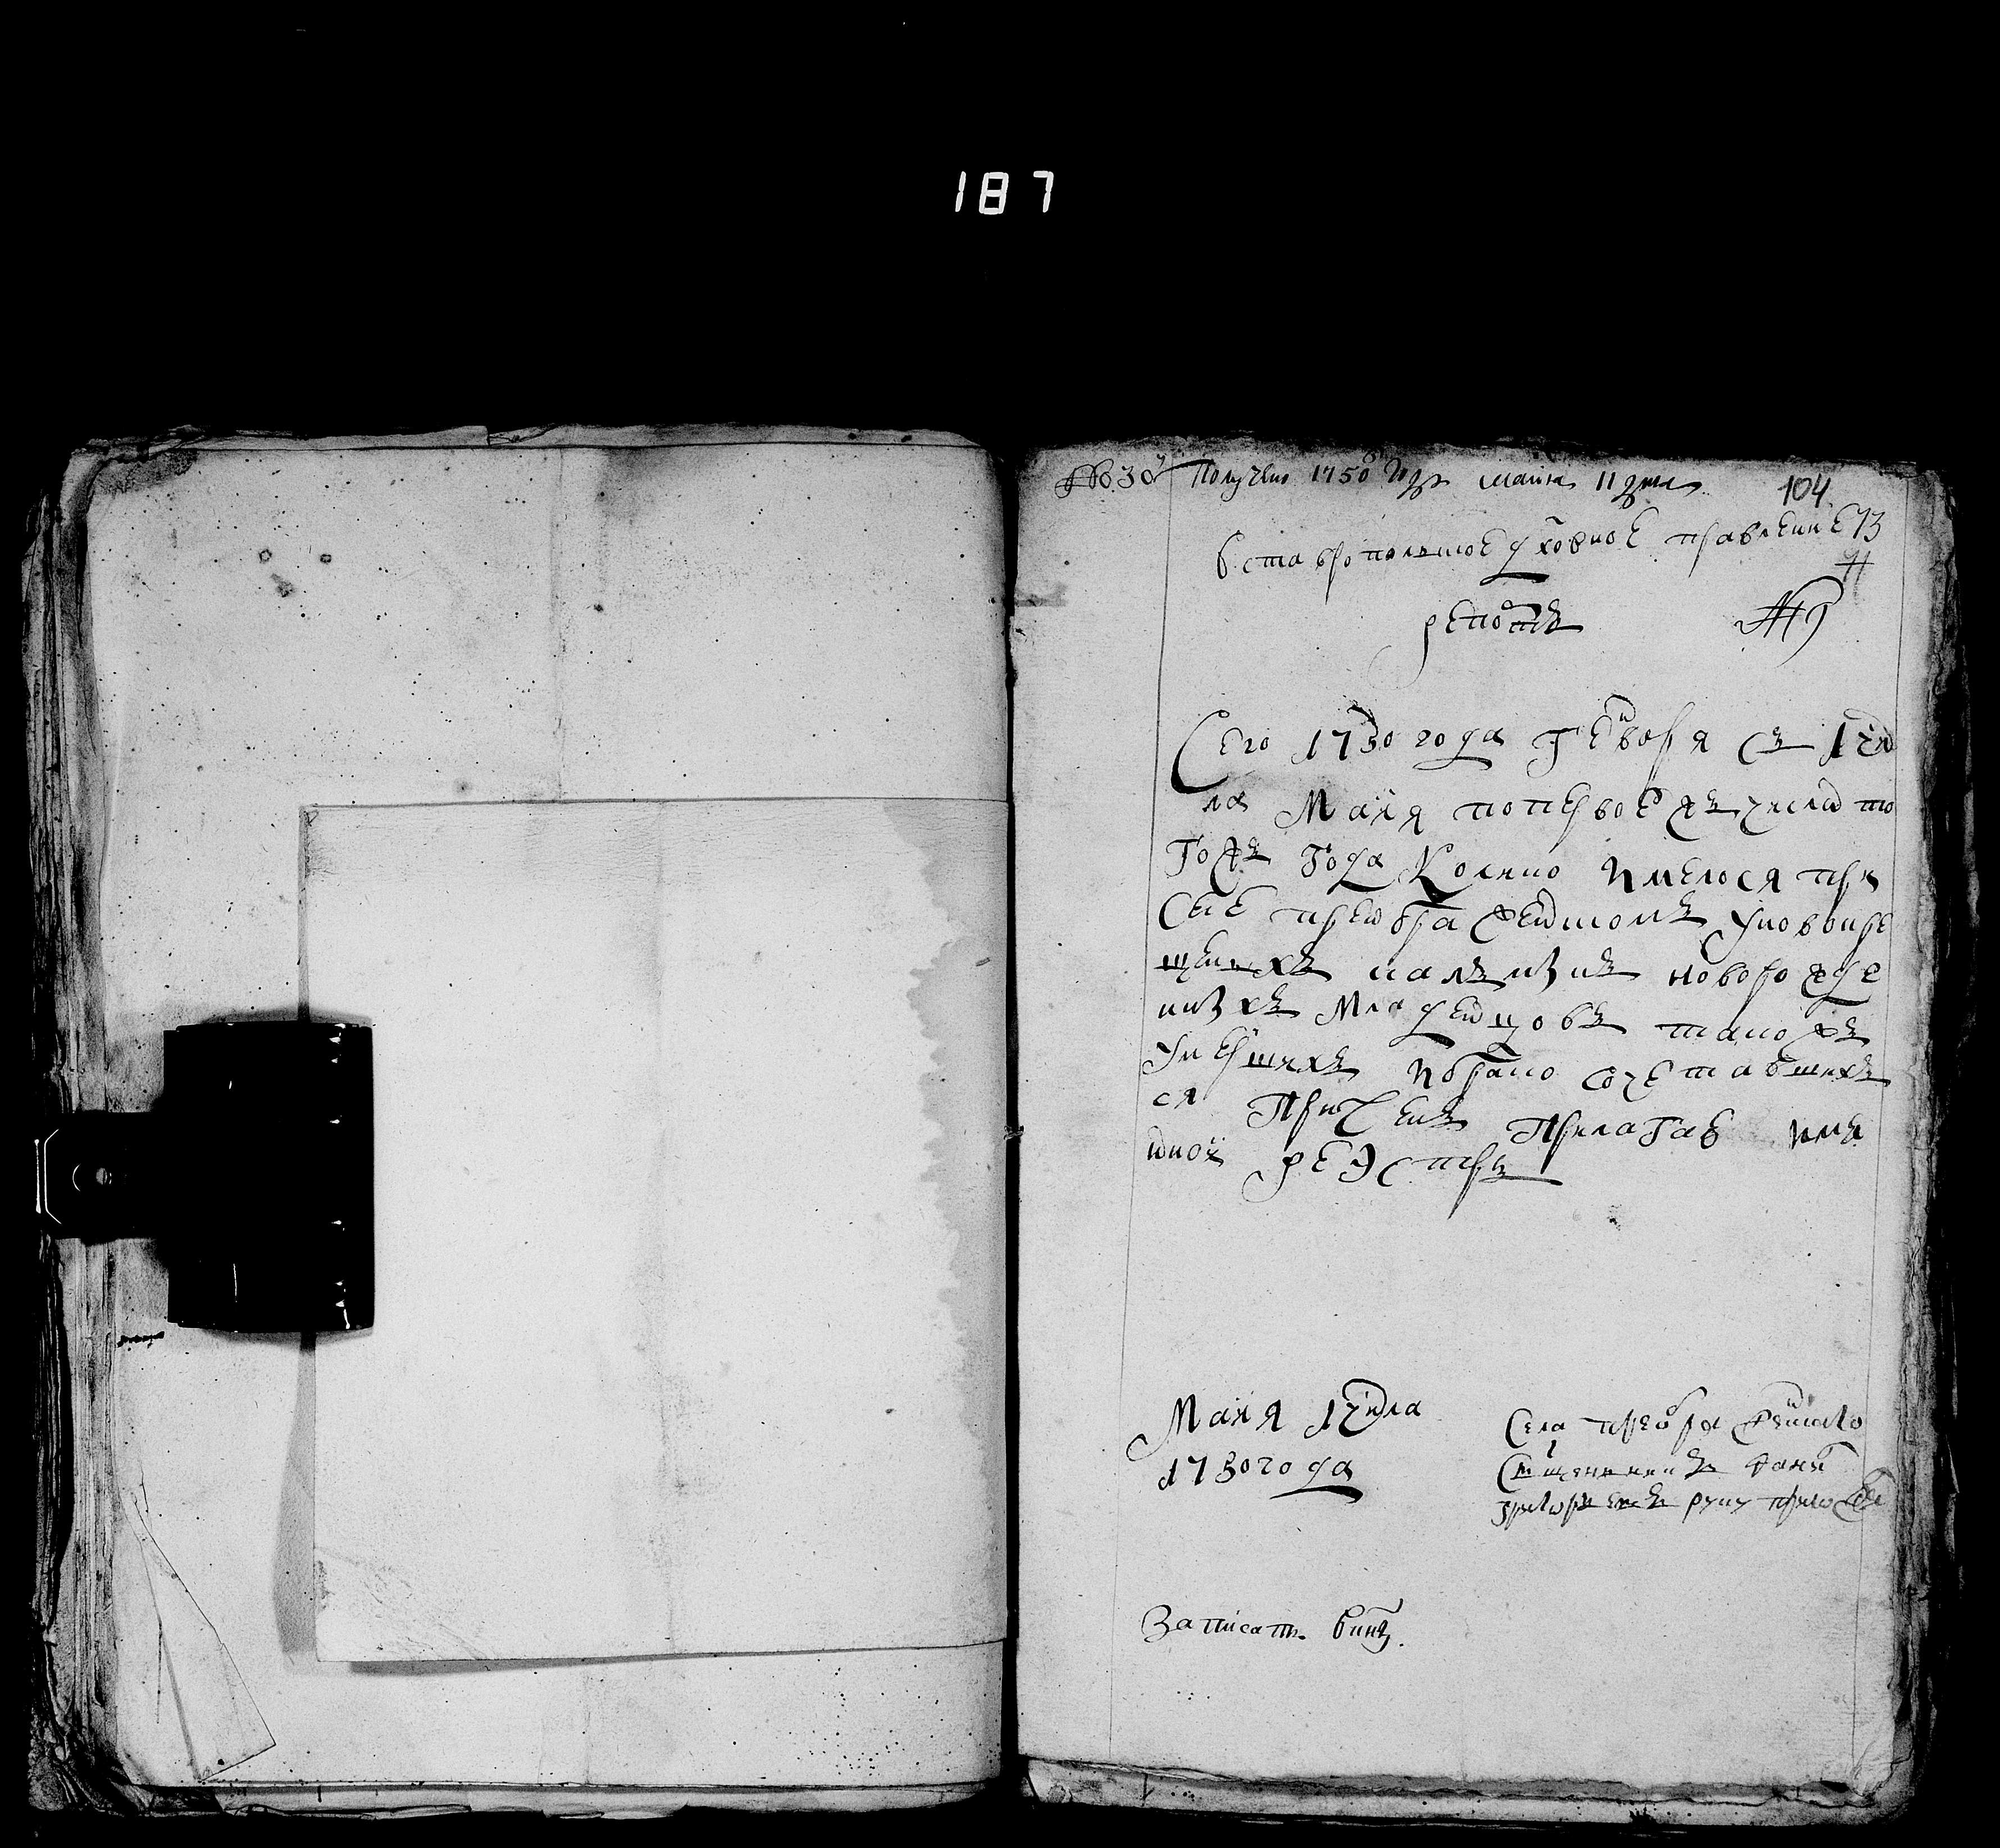 187
Получено 1750 году маия 11 дня
104
В ставропольшое духовное правление
73
репортъ
Сего 1750 года генворя съ 1 чи
ла Маия по первое жъ число то
гожъ года колико имелося при
селе преображенскомъ у новокре
щеныхъ калмыкъ новорожде
ныхъ младенцовъ такожъ
умершихъ и брако сочетавшихъ
ся при сем прилагаю имя
нной реэстръ
Маия 1 числа
1750 года
Села преображенского
Священникъ
григорьевъ руку приложи
Записать в книгу.